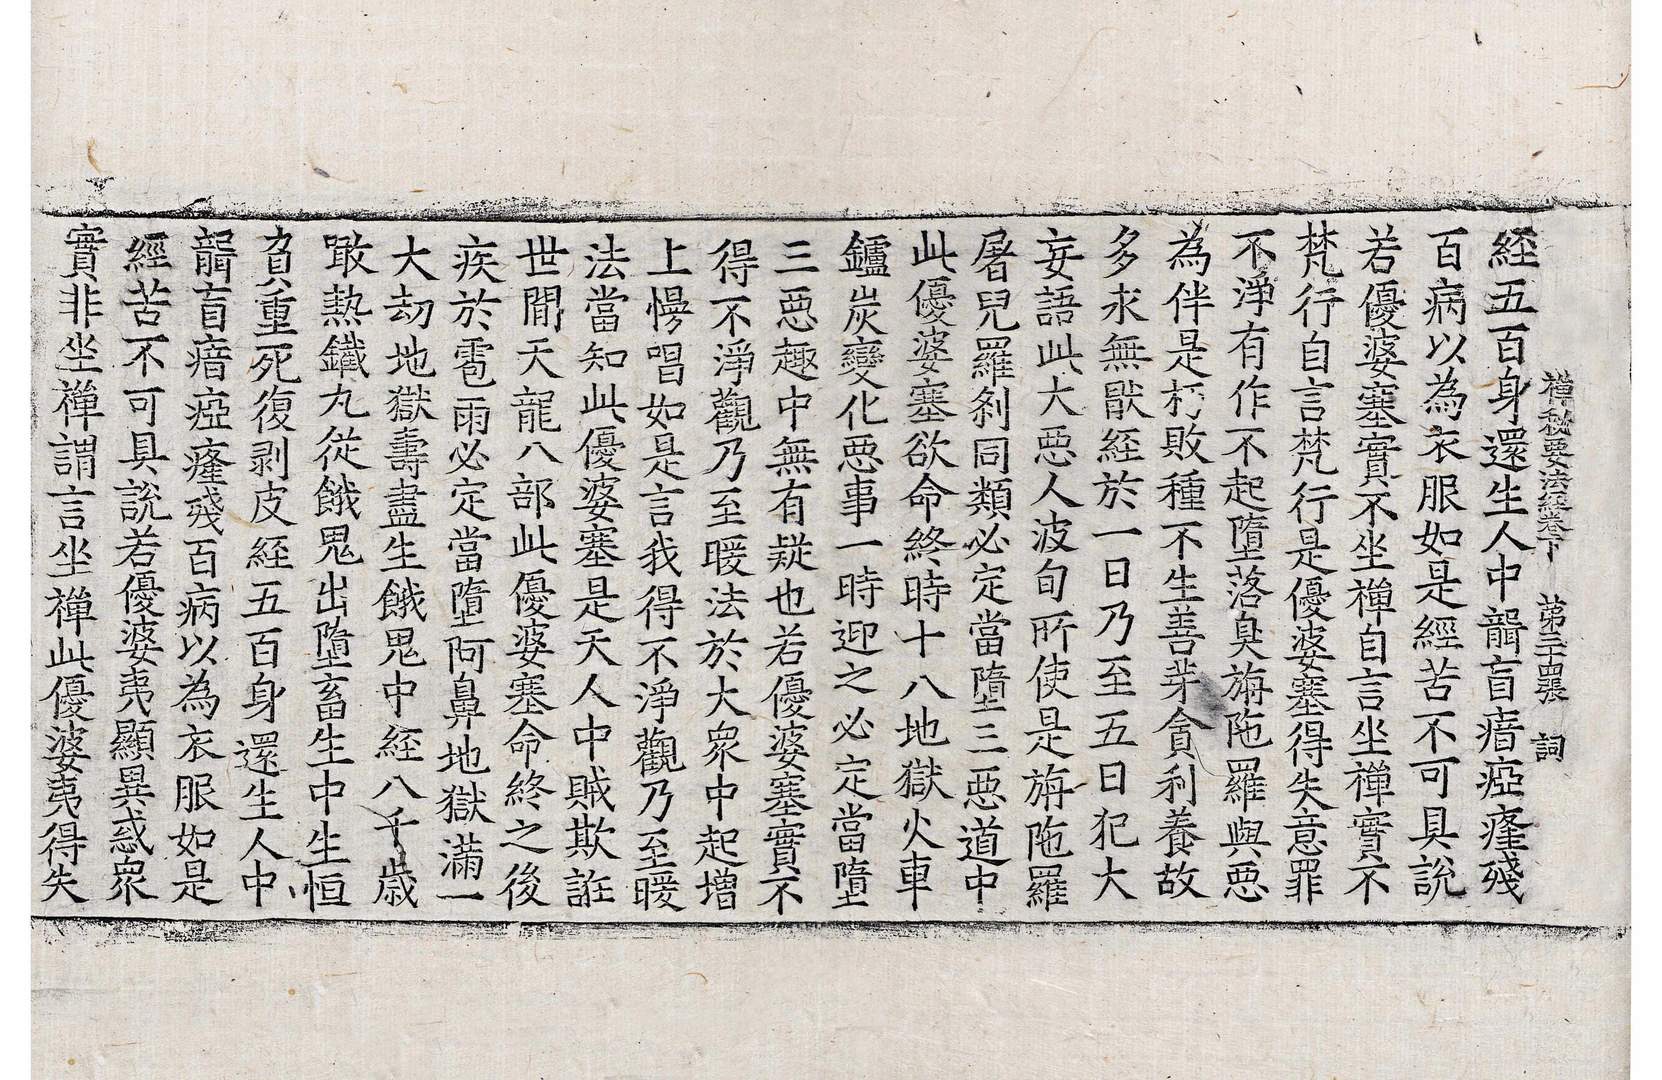 禪秘要法經卷下　第三十四張　詞
經五百身還生人中聾盲瘖瘂癃殘
百病以為衣服如是經苦不可具說
若優婆塞實不坐禪自言坐禪實不
梵行自言梵行是優婆塞得失意罪
不淨有作不起墮落臭旃陁羅與惡
為伴是朽敗種不生善芽貪利養故
多求無猒經於一日乃至五日犯大
妄語此大惡人波旬所使是旃陁羅
屠兒羅剎同類必定當墮三惡道中
此優婆塞欲命終時十八地獄火車
鑪炭變化惡事一時迎之必定當墮
三惡趣中無有疑也若優婆塞實不
得不淨觀乃至暖法於大眾中起增
上慢唱如是言我得不淨觀乃至暖
法當知此優婆塞是天人中賊欺誑
世間天龍八部此優婆塞命終之後
疾於雹雨必定當墮阿鼻地獄滿一
大劫地獄壽盡生餓鬼中經八千歲
噉熱鐵丸從餓鬼出墮畜生中生恒
負重死復剥皮經五百身還生人中
聾盲瘖瘂癃殘百病以為衣服如是
經苦不可具說若優婆夷顯異惑眾
實非坐禪謂言坐禪此優婆夷得失